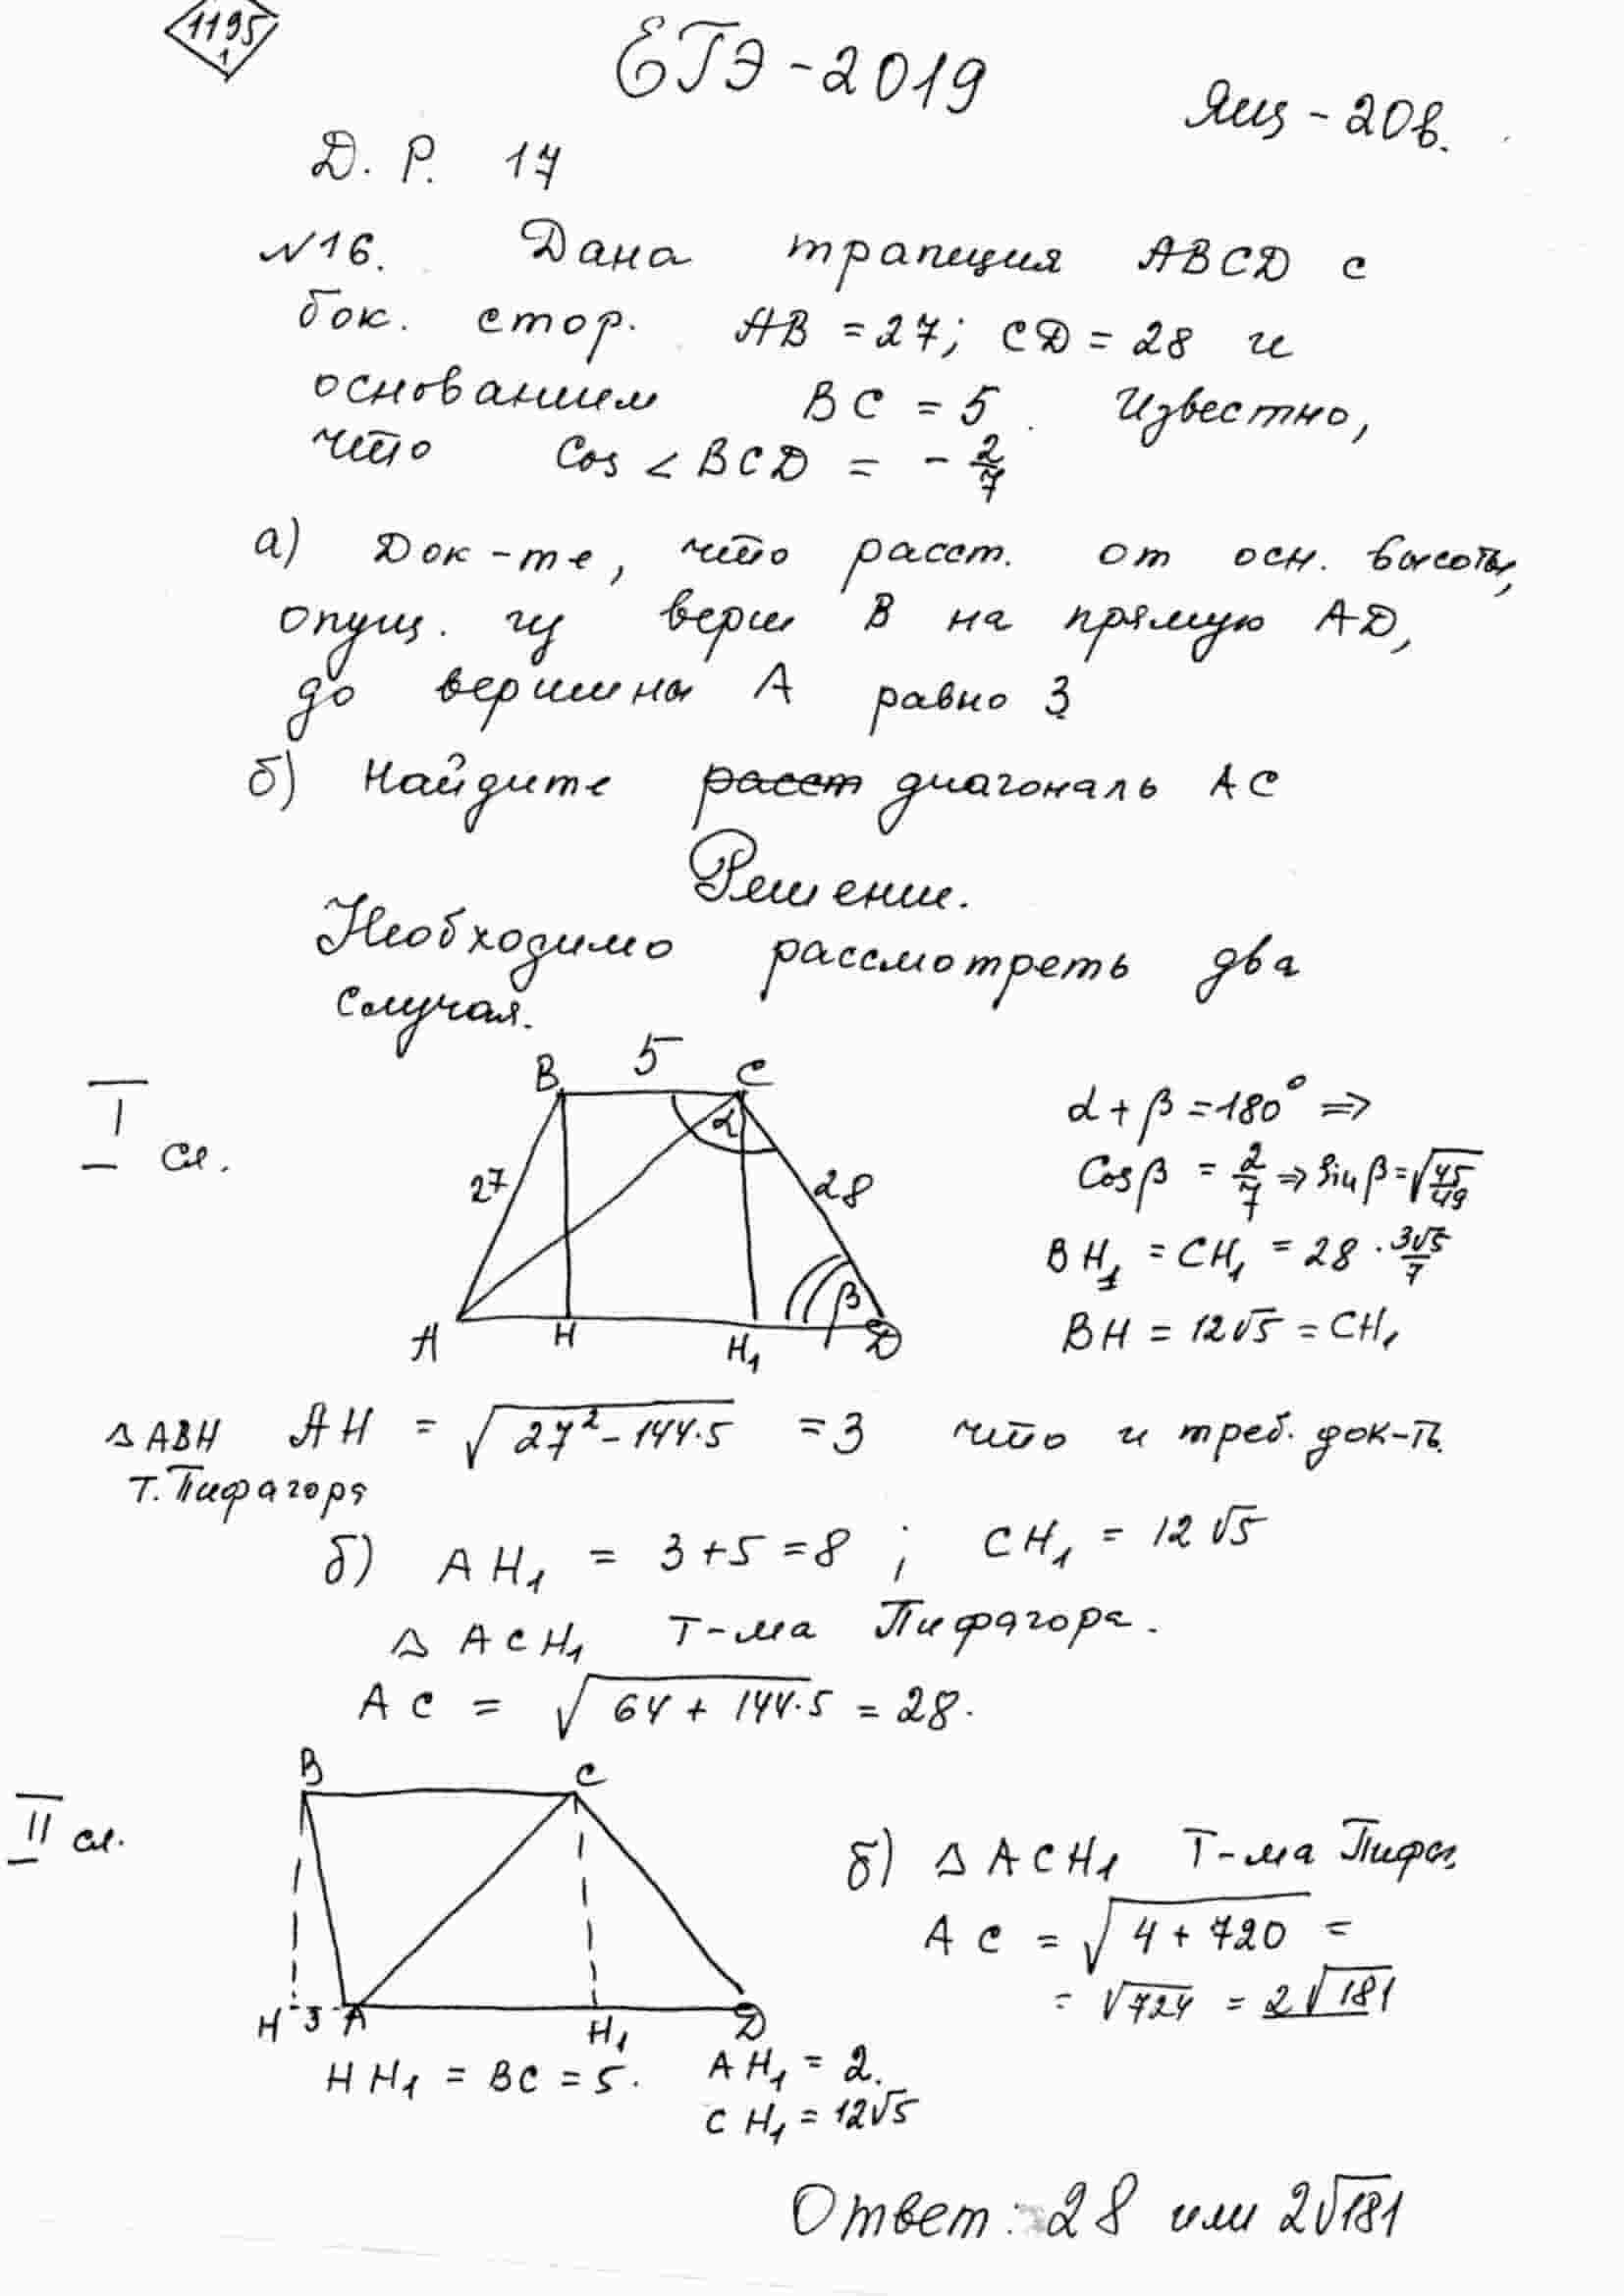 1195
1
ЕГЭ-2019
Ящ-20в.
Д. Р. 17
№16. Дана трапеция ABCD с
бок. стор. AB = 27; CD = 28 и
основанием BC = 5. Известно,
что Cos < BCD = - 2/7
а) Док-те, что расст. от осн. высоты,
опущ. из верш B на прямую AD,
до вершины A равно 3
б) Найдите расст диагональ AC
Решение.
Необходимо рассмотреть два
случая.
I сл.
B 5 C
α
27
28
β
A H H₁ D
α + β = 180° ⇒
Cosβ = 2/7 ⇒ Sinβ = √45/49
BH₁ = CH₁ = 28 · 3√5/7
BH = 12√5 = CH₁
Δ ABH AH = √27² - 144·5 = 3 что и треб. док-ть.
Т. Пифагора
б) AH₁ = 3+5 = 8 ; CH₁ = 12√5
Δ ACH₁ Т-ма Пифагора.
AC = √64 + 144·5 = 28.
II сл.
B C
H 3 A H₁ D
HH₁ = BC = 5. AH₁ = 2.
CH₁ = 12√5
б) Δ ACH₁ Т-ма Пифаг.
AC = √4 + 720 =
= √724 = 2√181
Ответ: 28 или 2√181